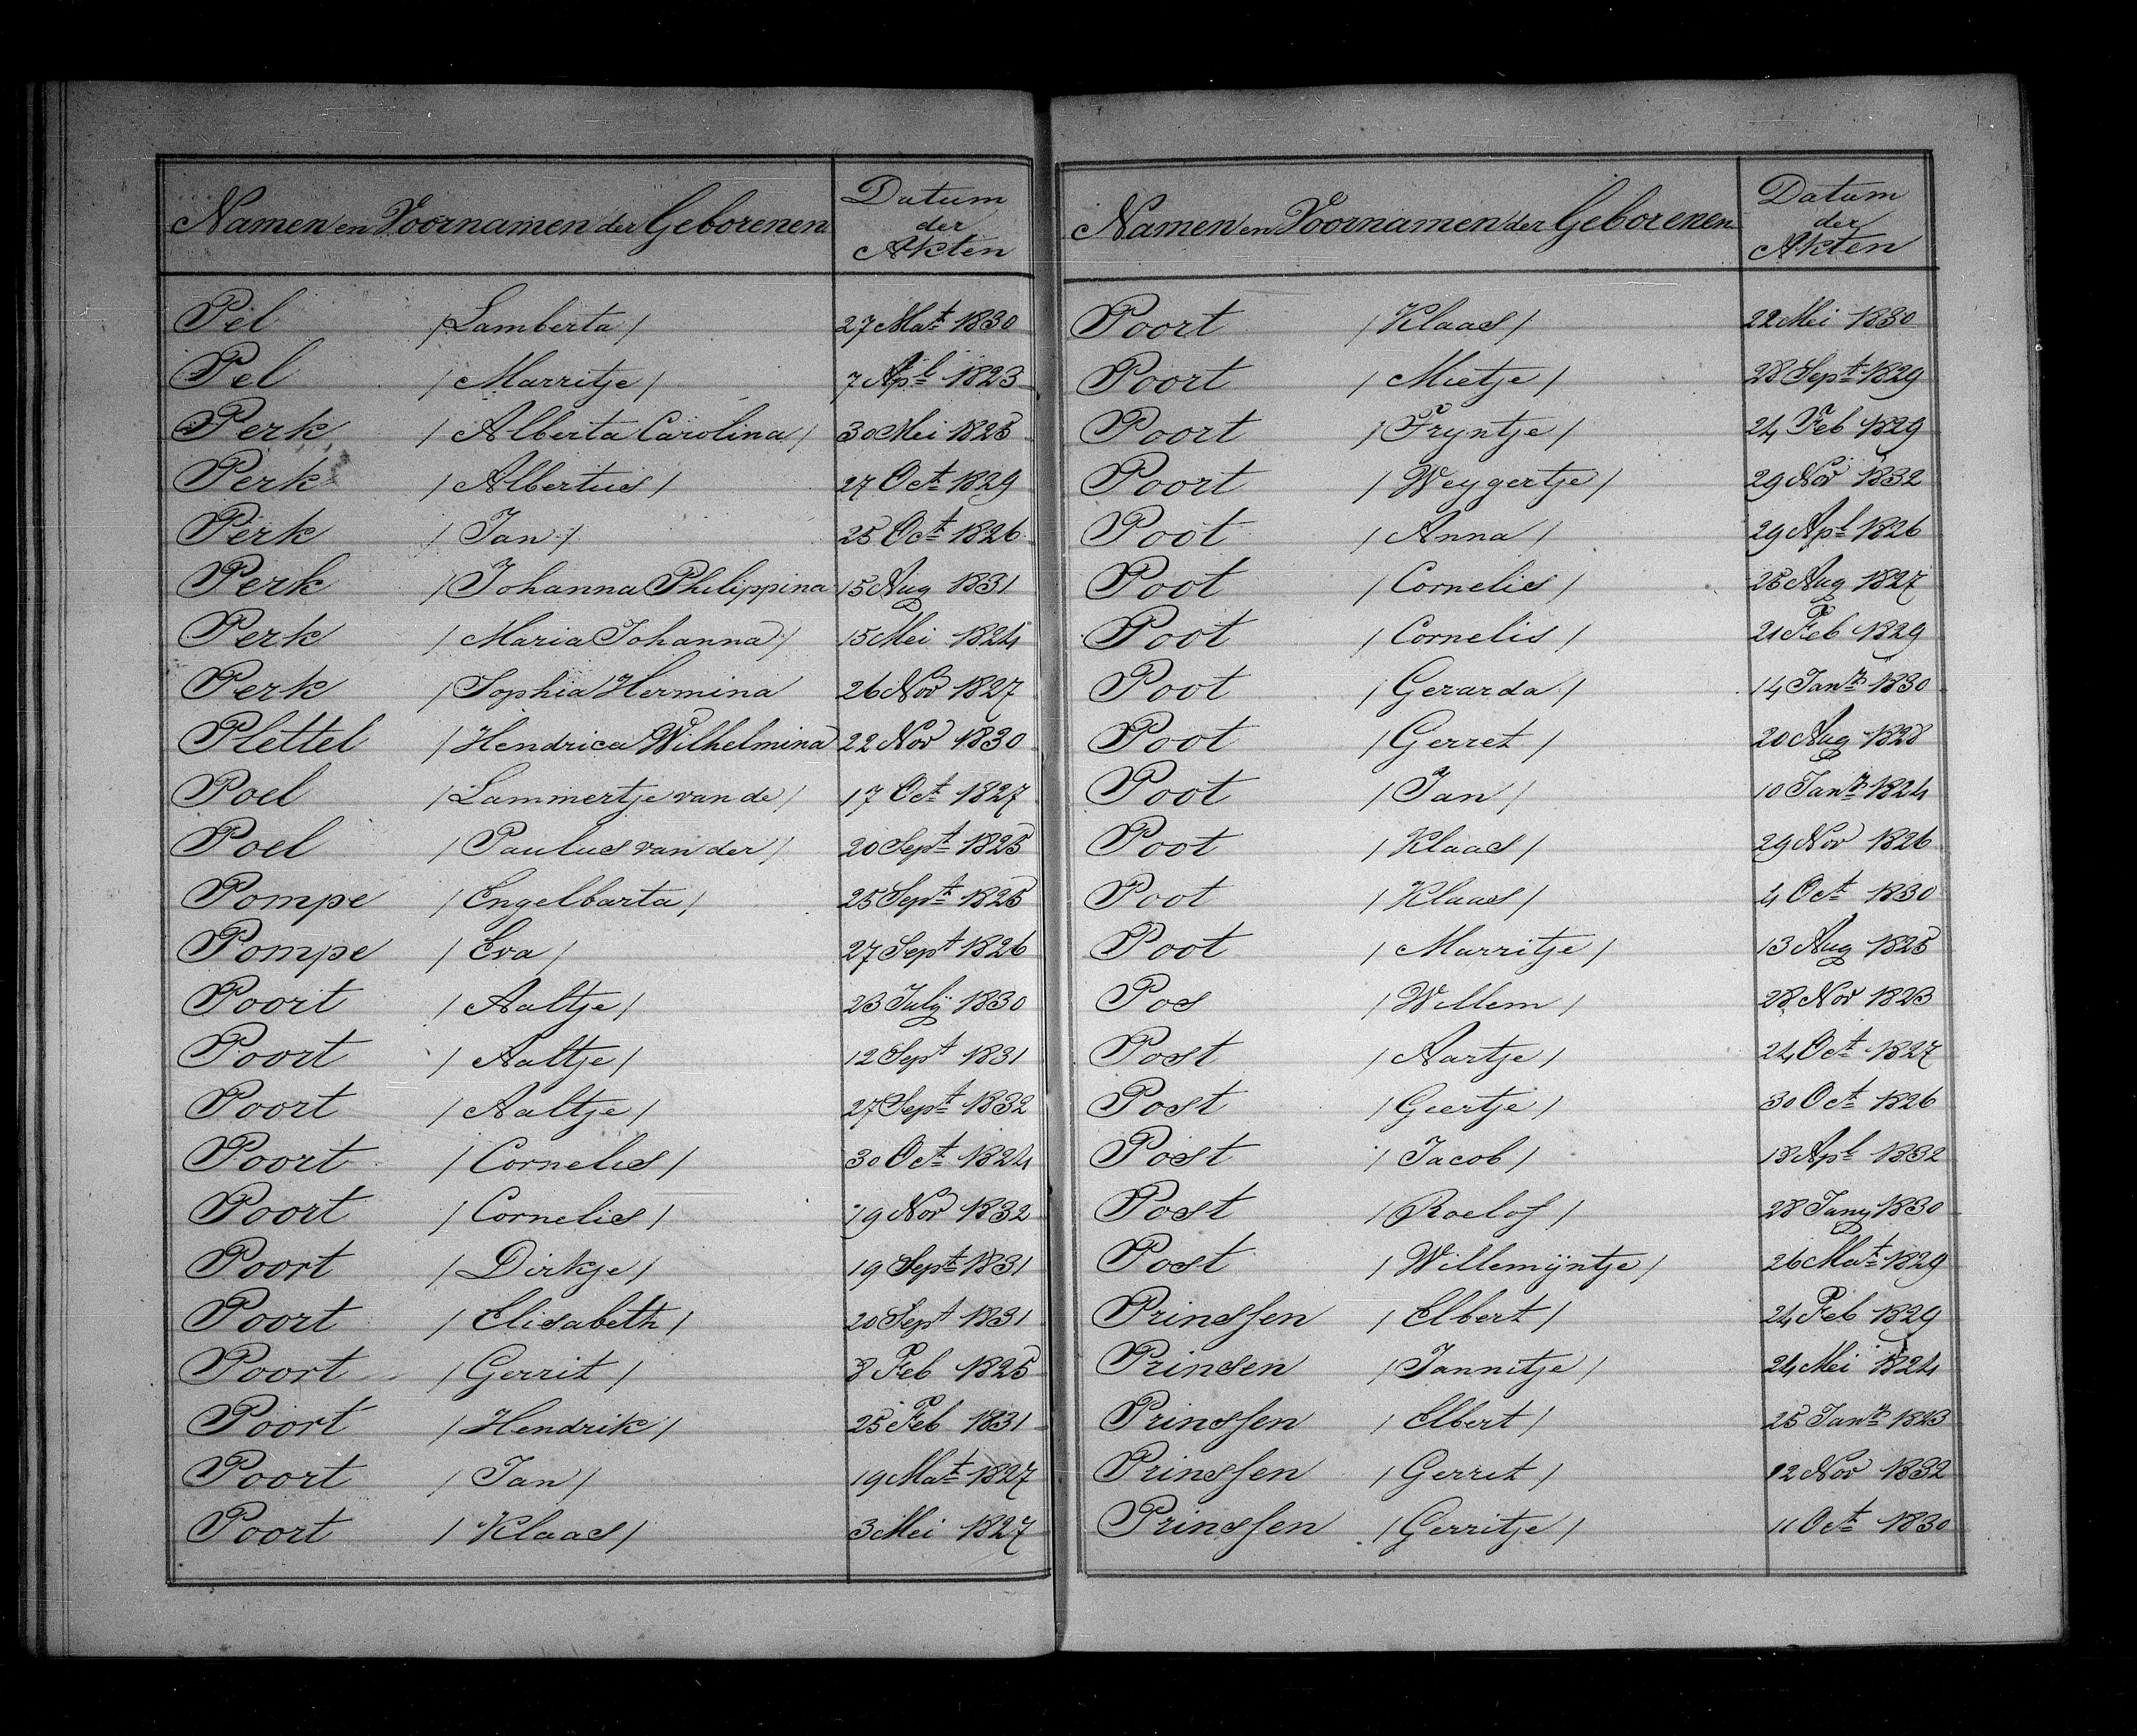 Namen en Voornamen der Geborenen Datum der Akten
Pel /Lamberta/ 27 Mat 1830
Pel /Marritje/ 7 Apl 1823
Perk /Alberta Carolina/ 30 Mei 1825
Perk /Albertus/ 27 Oct 1829
Perk /Jan/ 25 Oct 1826
Perk /Johanna Philippina 15 Aug 1831
Perk /Maria Johanna/ 15 Mei 1824
Perk /Sophia Hermina 26 Nov 1827
Plettel /Hendrica Wilhelmina 22 Nov 1830
Poel /Lammertje van de/ 17 Oct 1827
Poel /Paulus van der/ 20 Sept 1825
Pompe /Engelbarta/ 25 Sept 1825
Pompe /Eva/ 27 Sept 1826
Poort /Aaltje/ 23 July 1830
Poort /Aaltje/ 12 Sept 1831
Poort /Aaltje/ 27 Sept 1832
Poort /Cornelis/ 30 Oct 1824
Poort /Cornelis/ 19 Nov 1832
Poort /Dirkje/ 19 Sept 1831
Poort /Elisabeth/ 20 Sept 1831
Poort /Gerrit/ 8 Feb 1825
Poort /Hendrik/ 25 Feb 1831
Poort /Jan/ 19 Mat 1827
Poort /Klaas/ 3 Mei 1827
Namen en Voornamen der Geborenen Datum der Akten
Poort /Klaas/ 22 Mei 1830
Poort /Mietje/ 28 Sept 1829
Poort /Tryntje/ 24 Feb 1829
Poort /Weygertje/ 29 Nov 1832
Poot /Anna/ 29 Apl 1826
Poot /Cornelis/ 25 Aug 1827
Poot /Cornelis/ 21 Feb 1829
Poot /Gerarda/ 14 Janr 1830
Poot /Gerret/ 20 Aug 1828
Poot /Jan/ 10 Janr 1824
Poot /Klaas/ 29 Nov 1826
Poot /Klaas/ 4 Oct 1830
Poot /Marritje/ 13 Aug 1825
Pos /Willem/ 28 Nov 1823
Post /Aartje/ 24 Oct 1827
Post /Geertje/ 30 Oct 1826
Post /Jacob/ 18 Apl 1832
Post /Roelof/ 28 Jany 1830
Post /Willemijntje/ 26 Mat 1829
Prinssen /Elbert/ 24 Feb 1829
Prinsen /Jannitje/ 24 Mei 1824
Prinssen /Elbert/ 25 Janr 1823
Prinssen /Gerret/ 12 Nov 1832
Prinssen /Gerritje/ 11 Oct 1830